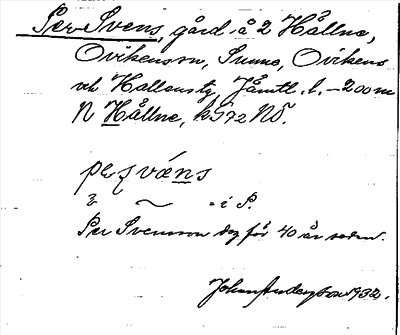 Per-Svens, gård å 2 Hållne,
Ovikensom, Sunne, Ovikens
och Hallens tg, Jämtl. l. – 200 m
N Hållne, k 572 NÖ.
pe ʂvæns
2 ~ - i P.
Per Svensson dog för 40 år sedan.
Johan 1932.